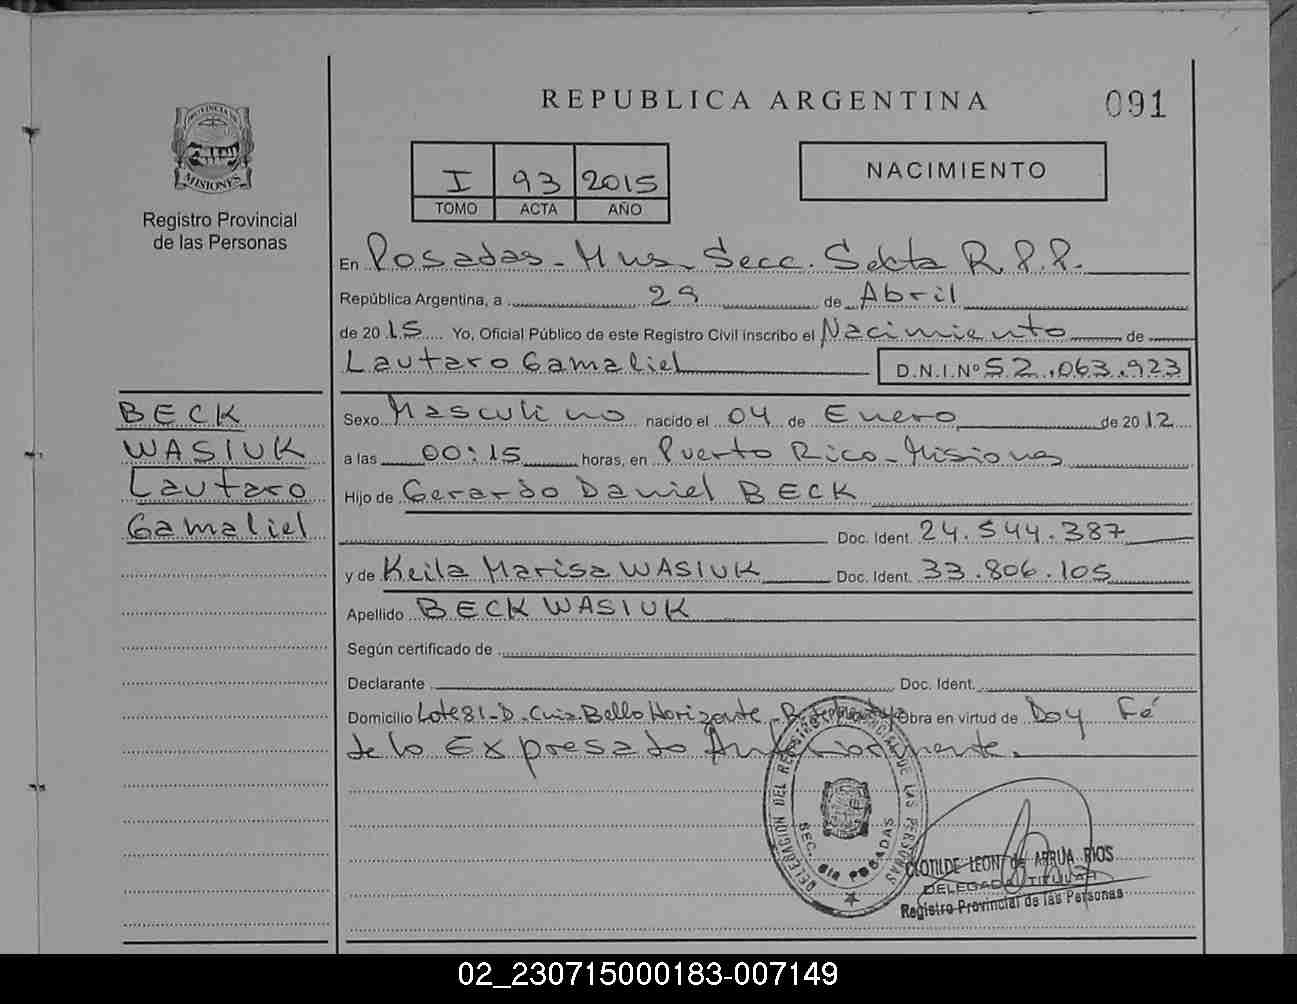 PROVINCIA DE
MISIONES
Registro Provincial
de las Personas
REPUBLICA ARGENTINA
091
I 93 2015
TOMO ACTA AÑO
NACIMIENTO
En Posadas - Mnes. Secc. Sexta R.P.P.
República Argentina, a 29 de Abril
de 2015 Yo, Oficial Público de este Registro Civil inscribo el Nacimiento de
Lautaro Gamaliel D.N.I.Nº 52.063.923
BECK
WASIUK
Lautaro
Gamaliel
Sexo Masculino nacido el 04 de Enero de 2012
a las 00:15 horas, en Puerto Rico - Misiones
Hijo de Gerardo Daniel BECK
Doc. Ident. 24.544.387
y de Keila Marisa WASIUK Doc. Ident. 33.806.105
Apellido BECK WASIUK
Según certificado de
Declarante Doc. Ident.
Domicilio Lote 81-D. Cnia. Bello Horizonte - Obra en virtud de Doy Fé
de lo Expresado Anteriormente.
DELEGACION DEL REGISTRO PROVINCIAL DE LAS PERSONAS
SEC. 6ta POSADAS
CLOTILDE LEONT de ARRUA RIOS
DELEGADA TITULAR
Registro Provincial de las Personas
02_230715000183-007149